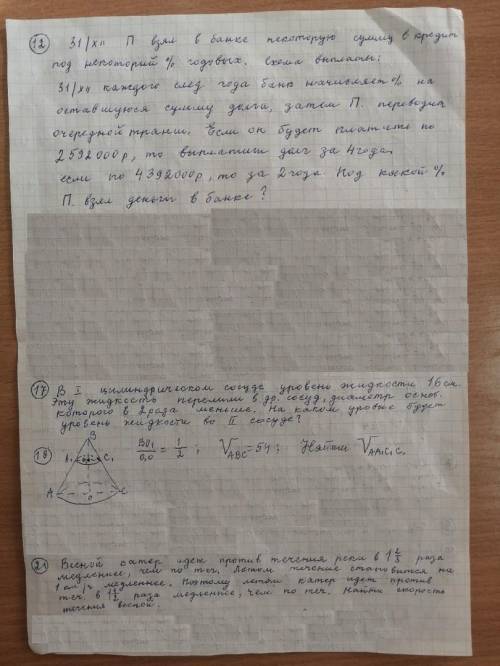 (12) 31/XII П взял в банке некоторую сумму в кредит
под некоторый % годовых. Схема выплаты:
31/XII каждого след года банк начисляет % на
оставшуюся сумму долга, затем П. переводит
очередной транш. Если он будет платить по
2592000р, то выплатит долг за 4 года,
если по 4392000р, то за 2 года. Под какой %
П. взял деньги в банке?
(17) В I цилиндрическом сосуде уровень жидкости 16 см.
Эту жидкость перелили в др. сосуд, диаметр основ.
которого в 2 раза меньше. На каком уровне будет
уровень жидкости во II сосуде?
(18) BO₁/O₁O = 1/2 ; V ABC = 54 ; Найти V AA₁C₁C.
B
A₁ C₁
A O C
(21) Весной катер идет против течения реки в 1 2/3 раза
медленнее, чем по теч. Летом течение становится на
1 км/ч медленнее. Поэтому летом катер идет против
теч. в 1 1/2 раза медленнее, чем по теч. Найти скорость
течения весной.